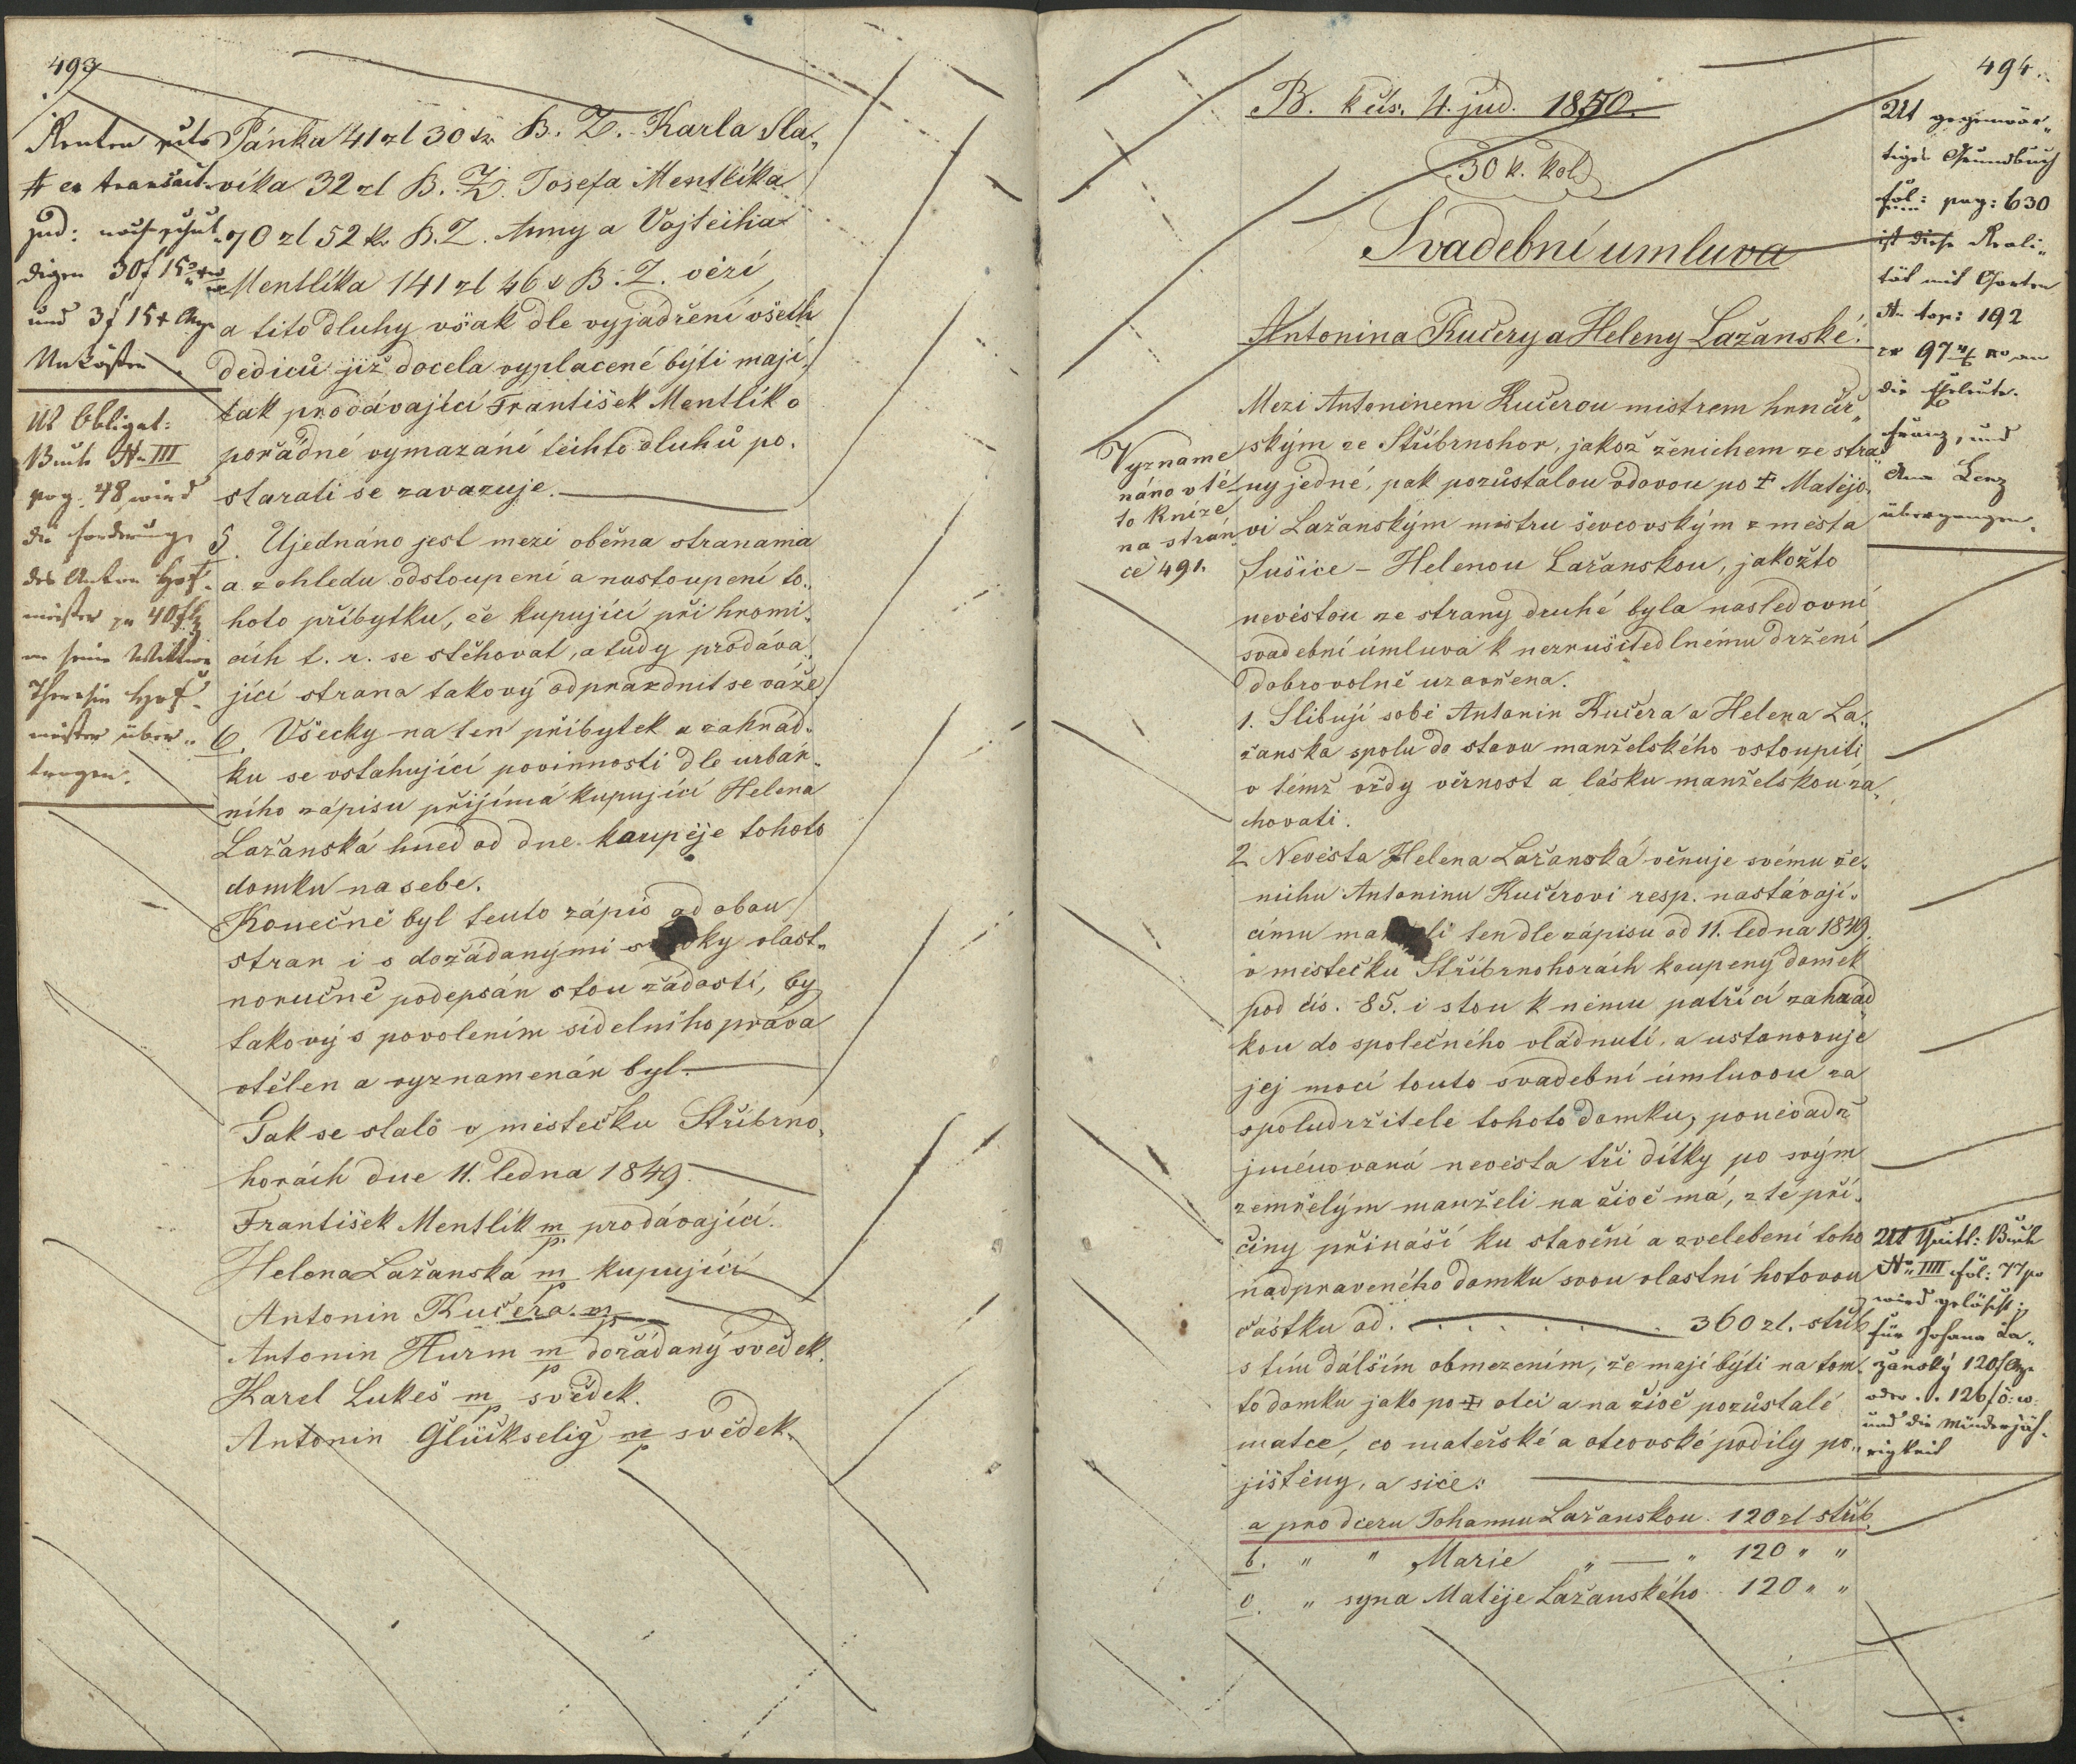 493
Pánka 41 zl 30 kr B. Z. Karla Sla„
víka 32 zl B. Z. Josefa Mentlíka
70 zl 52 kr B. Z. Anny a Vojtěcha
Mentlíka 141 zl 46 B. Z. vězí
a tito dluhy však dle vyjadření všech
dediců již docela vyplacené býti mají,
tak prodávající František Mentlík o
pořádné vymazání těchto dluhů po„
starati se zavazuje.
5. Ujednáno jest mezi oběma stranama
a z ohledu odstoupení a nastoupení to„
hoto příbytku, že kupující při hromi„
cích t. r. se stěhovat, a tudy prodáva„
jící strana takový odprazdnit se váže.
6. Všecky na ten příbytek a zahrád„
ku se vstahující povinnosti dle urbár„
ního zápisu přijímá kupující Helena
Lažanská hned od dne koupěje tohoto
domku na sebe.
Konečně byl tento zápis od obou
stran i s dožádanými vlast„
noručně podepsán s tou žádostí, by
takový s povolením sídelního práva
vtělen a vyznamenán byl.
Tak se stalo v městečku Stříbrno„
horách dne 11. ledna 1849.
František Mentlík m/p. prodávající.
Helena Lažanská m/p kupující
Antonin Kučera m/p
Antonin Hurm m/p dožádaný svědek.
Karel Lukeš m/p svědek.
Antonin Glückselig m/p svědek.
Renten
N ex transact.
jud: noch schul„
digen 30 f 15
und 3 f 15 x
Unkösten
Ut Obligat:
Buch N III
pag. 48 wird
die Forderung
des Anton Hof„
meister pr 40 f
an seine Wittwe
Theresia Hof„
meister über„
tragen.
494.
B. k čís. 4. jud. 1850.
30 k. kol
Svadební umluva
Antonina Kučery a Heleny Lažanské.
Mezi Antoninem Kučerou mistrem hrnčíř„
ským ze Stříbrnohor, jakož ženichem ze stra„
ny jedné, pak pozůstalou vdovou po † Matějo„
vi Lažanským mistru ševcovským z města
Sušice – Helenou Lažanskou, jakožto
nevěstou ze strany druhé byla nasledovní
svadební úmluva k nezrušitedlnému držení
dobrovolně uzavřena.
1. Slibují sobě Antonin Kučera a Helena La„
žanska spolu do stavu manželského vstoupiti
v témž vždy věrnost a lásku manželskou za„
chovati.
2 Nevěsta Helena Lažanská věnuje svému že„
nichu Antoninu Kučerovi resp. nastávají„
címu ten dle zápisu od 11. ledna 1849.
v městečku Stříbrnohorách koupený domek
pod čís. 85. i s tou k němu patřící zahrád„
kou do společného vládnutí, a ustanovuje
jej mocí touto svadební úmluvou za
spoludržitele tohoto domku, poněvadž
jménovaná nevěsta tři dítky po svým
zemřelým manželi na živě má, z té pří„
činy přináší ku stavění a zvelebení toho
nadpraveného domku svou vlastní hotovou
částku od . . . . . . . 360 zl. stříb
s tím dálším obmezením, že mají býti na tom„
to domku jako po † otci a na živě pozůstalé
matce, co mateřské a otcovské podíly po„
jištěny, a sice:
a pro dceru Johannu Lažanskou 120 zl stříb.
b. " " Marie " — " 120 " "
c. " syna Matěje Lažanského 120 " "
Vyzname„
náno v té„
to knize
na strán„
ce 491.
Ut gegenwär„
tigen Grundbuch
fol: pag: 630
ist diese Reali„
tät mit Garten
N top: 192
die Eheleute
Franz, und
Anna Lenz
übergangen.
Ut Quitt: Buch
N IIII fol: 77
wird gelöscht
für Johana La„
žansky 120 f
oder . . 126 f ö. w.
und die Minderjäh„
rigkeit